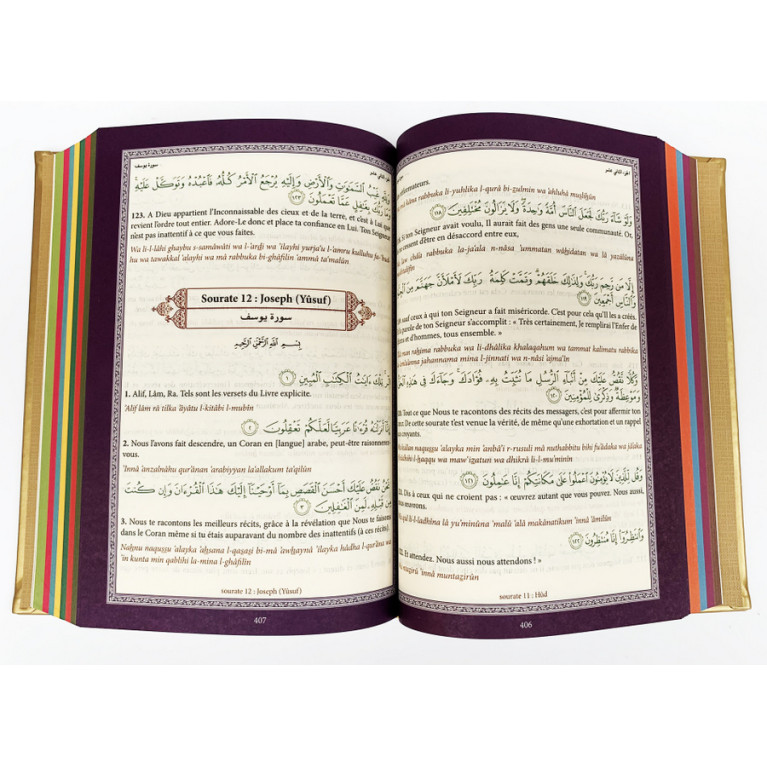 الجزء الثاني عشر
kāna rabbuka li-yuhlika l-qurā bi-ẓulmin wa 'ahluhā muṣliḥūn
وَلَوْ شَاءَ رَبُّكَ لَجَعَلَ النَّاسَ أُمَّةً وَاحِدَةً وَلَا يَزَالُونَ مُخْتَلِفِينَ ١١٨
Si ton Seigneur avait voulu, Il aurait fait des gens une seule communauté. Or,
d'être en désaccord entre eux,
rabbuka la-ja'ala n-nāsa 'ummatan wāḥidatan wa lā yazālūna
إِلَّا مَن رَّحِمَ رَبُّكَ وَلِذَٰلِكَ خَلَقَهُمْ وَتَمَّتْ كَلِمَةُ رَبِّكَ لَأَمْلَأَنَّ جَهَنَّمَ مِنَ الْجِنَّةِ
وَالنَّاسِ أَجْمَعِينَ ١١٩
sauf ceux à qui ton Seigneur a fait miséricorde. C'est pour cela qu'Il les a créés.
parole de ton Seigneur s'accomplit : « Très certainement, Je remplirai l'Enfer de
et d'hommes, tous ensemble. »
man raḥima rabbuka wa li-dhālika khalaqahum wa tammat kalimatu rabbika
jahannama mina l-jinnati wa n-nāsi 'ajma'īn
وَكُلًّا نَّقُصُّ عَلَيْكَ مِنْ أَنبَاءِ الرُّسُلِ مَا نُثَبِّتُ بِهِ فُؤَادَكَ وَجَاءَكَ فِي هَٰذِهِ الْحَقُّ
وَمَوْعِظَةٌ وَذِكْرَىٰ لِلْمُؤْمِنِينَ ١٢٠
Tout ce que Nous te racontons des récits des messagers, c'est pour affermir ton
De cette sourate t'est venue la vérité, de même qu'une exhortation et un rappel
croyants.
naquṣṣu 'alayka min 'anbā'i r-rusuli mā nuthabbitu bihi fu'ādaka wa jā'aka
l-ḥaqqu wa maw'iẓatun wa dhikrā li-l-mu'minīn
وَقُل لِّلَّذِينَ لَا يُؤْمِنُونَ اعْمَلُوا عَلَىٰ مَكَانَتِكُمْ إِنَّا عَامِلُونَ ١٢١
Dis à ceux qui ne croient pas : « œuvrez autant que vous pouvez. Nous aussi,
œuvrons.
qul li-l-ladhīna lā yu'minūna 'malū 'alā makānatikum 'innā 'āmilūn
وَانتَظِرُوا إِنَّا مُنتَظِرُونَ ١٢٢
Et attendez. Nous aussi nous attendons ! »
'innā muntaẓirūn
sourate 11 : Hûd
406
سورة يوسف
غَيْبُ السَّمَاوَاتِ وَالْأَرْضِ وَإِلَيْهِ يُرْجَعُ الْأَمْرُ كُلُّهُ فَاعْبُدْهُ وَتَوَكَّلْ عَلَيْهِ
وَمَا رَبُّكَ بِغَافِلٍ عَمَّا تَعْمَلُونَ ١٢٣
123. A Dieu appartient l'Inconnaissable des cieux et de la terre, et c'est à Lui que
revient l'ordre tout entier. Adore-Le donc et place ta confiance en Lui. Ton Seigneur
n'est pas inattentif à ce que vous faites.
Wa li-l-lāhi ghaybu s-samāwāti wa l-'arḍi wa 'ilayhi yurja'u l-'amru kulluhu fa-'bud-
hu wa tawakkal 'alayhi wa mā rabbuka bi-ghāfilin 'ammā ta'malūn
Sourate 12 : Joseph (Yûsuf)
سورة يوسف
بِسْمِ اللَّهِ الرَّحْمَٰنِ الرَّحِيمِ
تِلْكَ آيَاتُ الْكِتَابِ الْمُبِينِ ١
1. Alif, Lâm, Ra. Tels sont les versets du Livre explicite.
'Alif lām rā tilka 'āyātu l-kitābi l-mubīn
إِنَّا أَنزَلْنَاهُ قُرْآنًا عَرَبِيًّا لَّعَلَّكُمْ تَعْقِلُونَ ٢
2. Nous l'avons fait descendre, un Coran en [langue] arabe, peut-être raisonnerez-
vous.
'Innā 'anzalnāhu qur'ānan 'arabiyyan la'allakum ta'qilūn
نَحْنُ نَقُصُّ عَلَيْكَ أَحْسَنَ الْقَصَصِ بِمَا أَوْحَيْنَا إِلَيْكَ هَٰذَا الْقُرْآنَ وَإِن كُنتَ
مِن قَبْلِهِ لَمِنَ الْغَافِلِينَ ٣
3. Nous te racontons les meilleurs récits, grâce à la révélation que Nous te faisons
dans le Coran même si tu étais auparavant du nombre des inattentifs (à ces récits).
Naḥnu naquṣṣu 'alayka 'aḥsana l-qaṣaṣi bi-mā 'awḥaynā 'ilayka hādha l-qur'āna wa
'in kunta min qablihi la-mina l-ghāfilīn
sourate 12 : Joseph (Yûsuf)
407